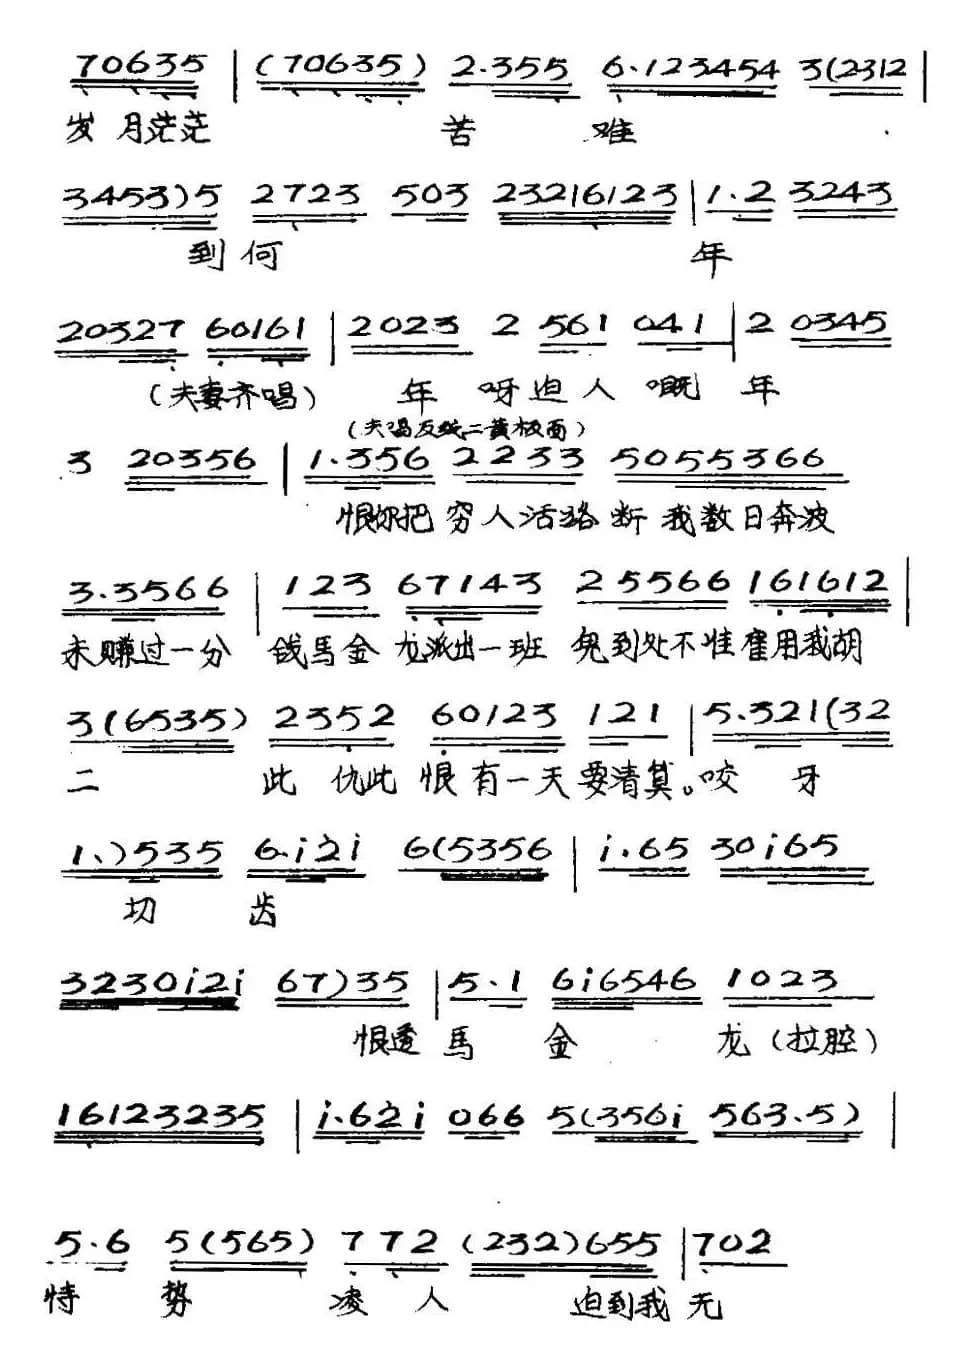 70635 | (70635) 2·355 6·123454 3(2312 |
岁月茫茫 苦 难
3453)5 2723 503 23216123 | 1·2 3243
到何 年
20327 60161 | 2023 2 561 041 | 2 0345
(夫妻齐唱) 年 呀迫人 嘅 年
(夫唱反线二黄板面)
3 20356 | 1·356 2233 5055366
恨你把 穷人活路断 我数日奔波
3·3566 | 123 67143 25566 161612 |
未赚过一分 钱馬金龙派出一班 鬼到处不准雇用我胡
3(6535) 2352 60123 121 | 5·321(32
二 此仇此恨有一天要清算。咬 牙
1·)535 6·i2i 6(5356 | i·65 30i65
切 齿
3230i2i 67)35 | 5·1 6i6546 1023
恨透 馬 金 龙(拉腔)
16123235 | i·62i 066 5(356i 563·5) |
5·6 5(565) 772 (232)655 | 702
恃 势 凌 人 迫到我 无